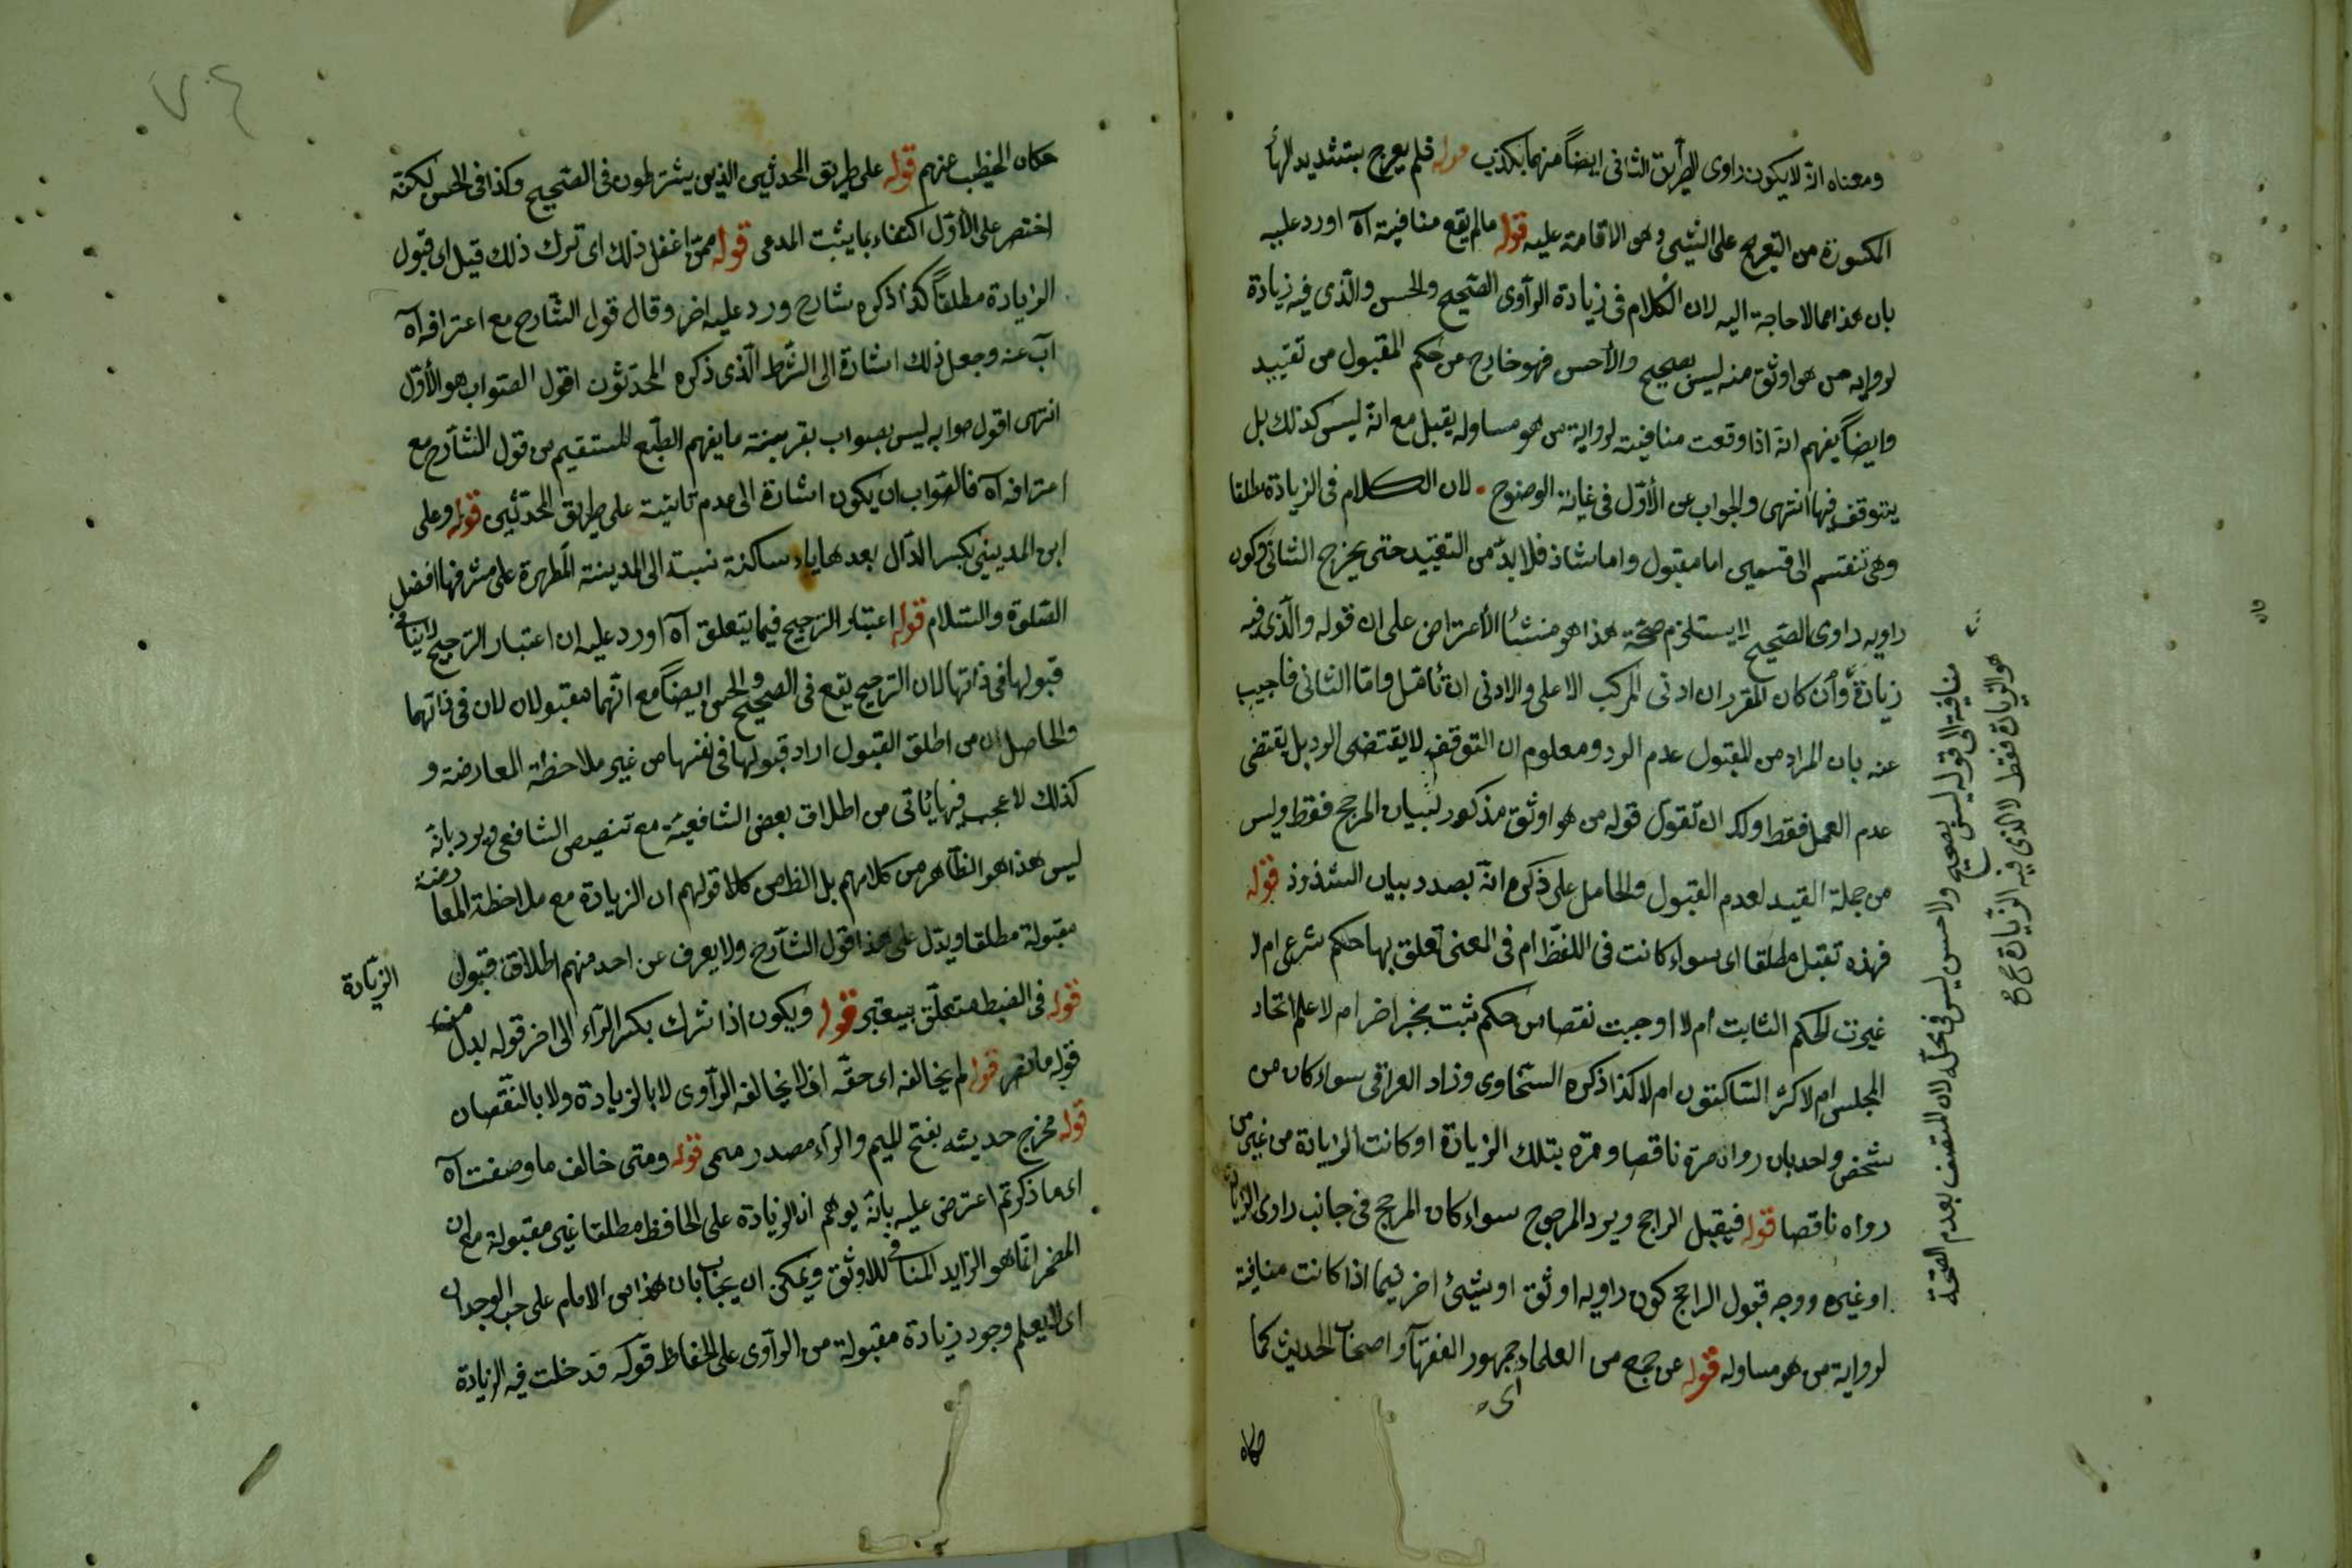 ومعناه انه لا يكون راوى الطريق الثانى ايضاً متهما بكذب قوله فلم يعرج بتشديد الراء
المكسورة من التعريج على الشيئ وهو الاقامة عليه قوله مالم يقع منافية اه اورد عليه
بان هذا مما لا حاجة اليه لان الكلام فى زيادة الراوى الصحيح والحسن والذى فيه زيادة
لرواية من هو اوثق منه ليس بصحيح ولا حسن فهو خارج من حكم المقبول من تقييد
وايضاً يفهم انه اذا وقعت منافية لرواية من هو مساو له يقبل مع انه ليس كذلك بل
يتوقف فيها انتهى والجواب عن الأول فى غاية الوضوح لان الكلام فى الزيادة مطلقا
وهى تنقسم الى قسمين اما مقبول واما شاذ فلا بد من التقييد حتى يخرج الثانى وكون
راويه راوى الصحيح لا يستلزم صحته هذا هو منشأ الأعتراض على ان قوله والذى فيه
زيادة وان كان المقرر ان ادنى المركب الاعلى والادنى ان تأمل واما الثانى فاجيب
عنه بان المراد من المقبول عدم الرد ومعلوم ان التوقف لا يقتضى الرد بل يقتضى
عدم العمل فقط ولك ان تقول قوله من هو اوثق مذكور لبيان المرجح فقط وليس
من جملة القيد لعدم القبول والحامل على ذكره انه بصدد بيان الشذوذ قوله
فهذه تقبل مطلقا اى سواء كانت فى اللفظ ام فى المعنى تعلق بها حكم شرعى ام لا
غيرت الحكم الثابت ام لا اوجبت نقصا من حكم ثبت بخبر اخر ام لا علم اتحاد
المجلس ام لا كثر الساكتون ام لا كذا ذكره السخاوى وزاد العراقى سواء كان من
شخص واحد بان رواه مرة ناقصا ومرة بتلك الزيادة او كانت الزيادة من غير من
رواه ناقصا قوله فيقبل الراجح ويرد المرجوح سواء كان المرجح فى جانب راوى الزيادة
او غيره ووجه قبول الراجح كون راويه اوثق او شيئ اخر فيما اذا كانت منافية
لرواية من هو مساو له قوله عن جمع من العلماء جمهور الفقهآ واصحاب الحديث كما
اى
حكاه
منافية الى قوله ليس بصحيح ولا حسن ليس فى محله لان المتصف بعدم الصحة
هو الزيادة فقط لا الذى فيه الزيادة
حكاه الخطيب عنهم قوله على طريق المحدثين الذين يشترطون فى الصحيح وكذا فى الحسن لكنه
اختصر على الأول اكتفاء بما يثبت المدعى قوله ممن اغفل ذلك اى ترك ذلك قيل اى قبول
الزيادة مطلقاً كذا ذكره شارح ورد عليه اخر وقال قول الشارح مع اعترافه اه
آب عنه وجعل ذلك اشارة الى الشرط الذى ذكره المحدثون اقول الصواب هو الأول
انتهى اقول صوابه ليس بصواب بقرينة ما يفهم الطبع المستقيم من قول الشارح مع
اعترافه اه فالصواب ان يكون اشارة الى عدم تأتيه على طريق المحدثين قوله وعلى
ابن المدينى بكسر الدال بعدها ياء ساكنة نسبة الى المدينة المطهرة على مشرفها افضل
الصلوة والسلام قوله اعتبار الترجيح فيما يتعلق اه اورد عليه ان اعتبار الترجيح لا ينافى
قبولها فى ذاتها لان الترجيح يقع فى الصحيح والحسن ايضاً مع انهما مقبولان لان فى ذاتهما
والحاصل ان من اطلق القبول اراد قبولها فى نفسها من غير ملاحظة المعارضة و
كذلك لا عجب فيما يأتى من اطلاق بعض الشافعية مع تنصيص الشافعى ويرد بانه
ليس هذا هو الظاهر من كلامهم بل الظ من كلا قولهم ان الزيادة مع ملاحظة المعارضة
مقبولة مطلقا ويدل على هذا قول الشارح ولا يعرف عن احد منهم اطلاق قبول
الزيادة
قوله فى الضبط متعلق بيعتبر قوله ويكون اذا شرك بكسر الراء الى اخر قوله بدل منه
قوله مانصه قوله لم يخالفه اى حقه ان لا يخالفه الراوى لا بالزيادة ولا بالنقصان
قوله مخرج حديثه بفتح الميم والراء مصدر ميمى قوله ومتى خالف ما وصفت اه
اى ما ذكرتم اعترض عليه بانه يوهم ان الزيادة على الحافظ مطلقا غير مقبولة مع ان
المضر انما هو الزايد المنافى للاوثق ويمكن ان يجاب بان هذا من الامام على حسب الوجدان
اى لا يعلم وجود زيادة مقبولة من الراوى على الحفاظ قوله قد خلت فيه الزيادة